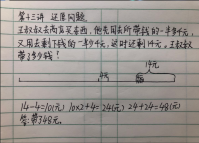 第十三讲 还原问题
王叔叔去商店买东西,他先用去所带钱的一半多4元,
又用去剩下钱的一半多4元,这时还剩14元,王叔叔
带了多少钱?
14元
4元
14-4=10(元) 10×2+4=24(元) 24+24=48(元)
答:带了48元。